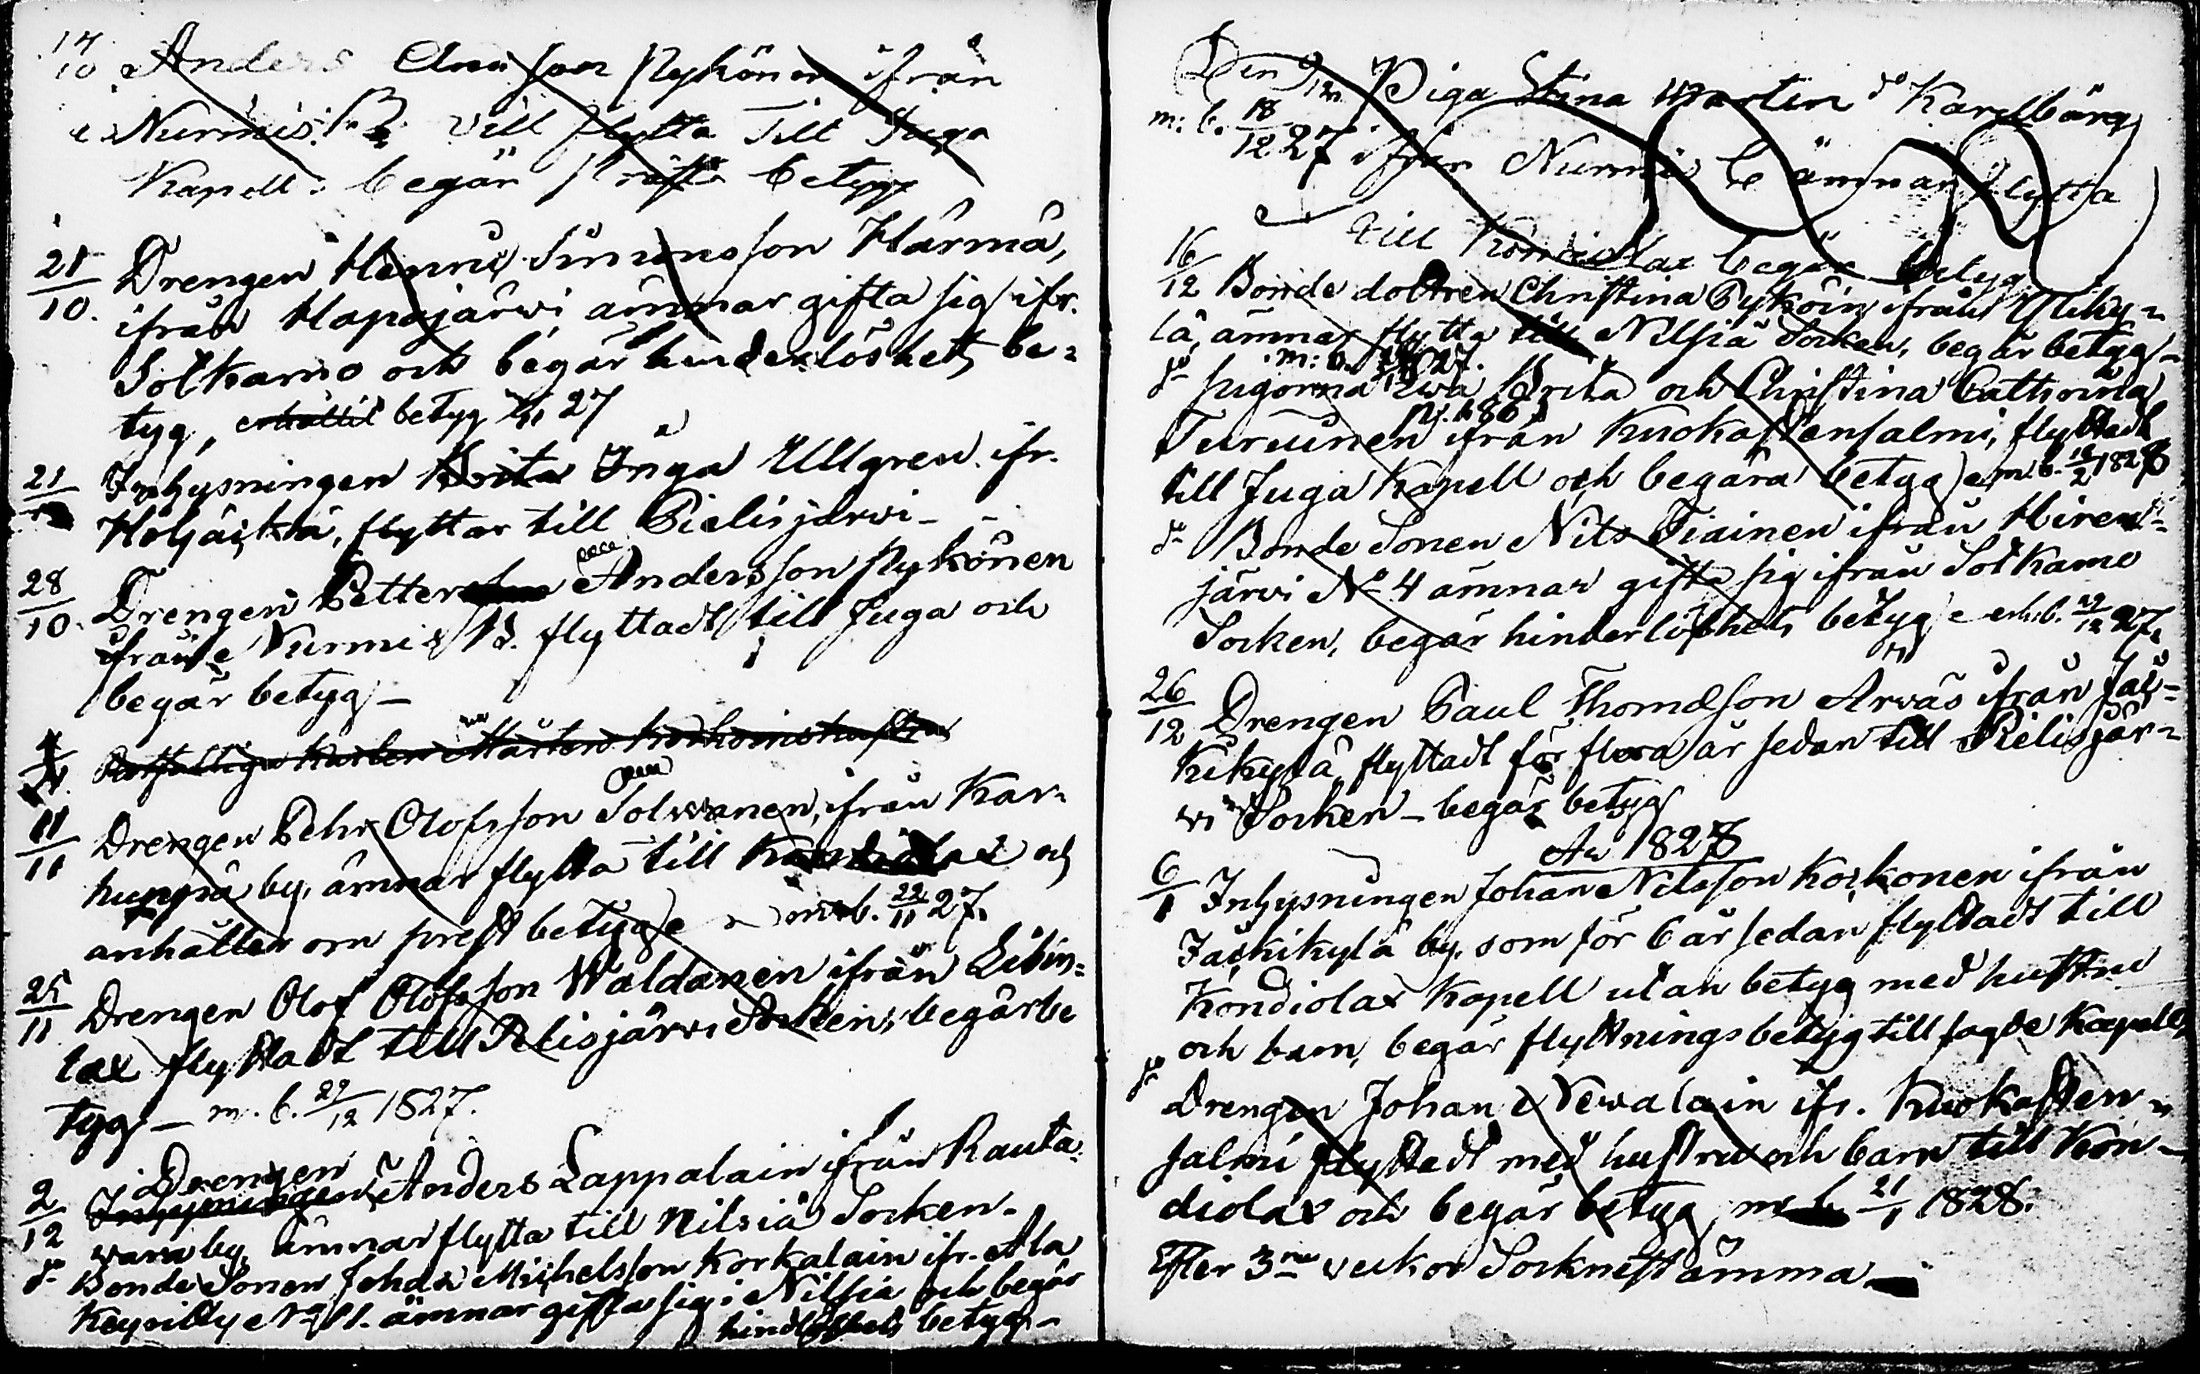 17/10 Anders Andersson Nykönen ifrån
Nurmis vill flytta till Juga
Kapell begär Präste betygg
21/10. Drengen Henric Simonsson Härmä,
ifrån Hapajärwi ämnar gifta sig ifr.
Sotkamo och begär hinderlöshets be=
tyg, erhållit betyg 27
21 Inhysningen Brita Inga Ullgren ifr.
Höljäkkä, flyttar till Pielisjärwi -
28/10. Drengen Petter Andersson Nykönen
ifrån Nurmis B. flyttadt till Juga och
begär betyg -
11/11 Drengen Pehr Olofsson Solwanen, ifrån Kar=
hunpä by, ämnar flytta till Kondiolax och
anhåller om prest betyg m. b. 22/11 27.
25/11 Drengen Olof Olofsson Waldanen ifrån Libin=
lax flyttadt till Pielisjärwi Socken, begär be
tyg - m. b. 29/12 1827.
Drengen
2/12 Inhysningen Anders Lappalain ifrån Rauta=
wara by ämnar flytta till Nilsiä Socken.
do Bonde Sonen Johan Michelsson Korkalain ifr. Ala
Keyritty No 11. ämnar gifta sig i Nilsiä och begär
hindlöshets betyg -
Den 9/12 Piga Stina Martin do Karllbärg
m: b. 18/12 27 ifrån Nurmis by ämnar flytta
till Kondiolax begär betyg
16/12 Bonde dottren Christina Pyköin ifrån Yliky=
lä, ämnar flytta till Nilsiä Socken, begär betyg -
m: b. 27.
do pigorna Ewa Brita och Christina Catharina
Turuinen ifrån Kuokastensalmi, flyttadt
till Juga Kapell och begära betyg m. b. 1828
do Bonde Sonen Nils Tiainen ifrån Hiren=
järwi No 4 ämnar gifta sig ifrån Sotkamo
Socken, begär hinderlöshets betyg erh. b. 29/12 27.
26/12 Drengen Paul Thomasson Arwas ifrån Jäs=
kikylä, flyttadt för flera år sedan till Pielisjär=
wi Socken - begär betyg
An 1828
6/1 Inhysningen Johan Nilsson Korkonen ifrån
Jäskikylä by, som för 6 år sedan flyttadt till
Kondiolax Kapell utan betyg med hustru
och barn, begär flyttningsbetyg till sagde Kapell,
do Drengen Johan Newalain ifr. Kuokasten=
salmi flyttadt med hustru och barn till Kon=
diolax och begär betyg, m. b. 21/1 1828.
Efter 3ne veckor Socknestämma -